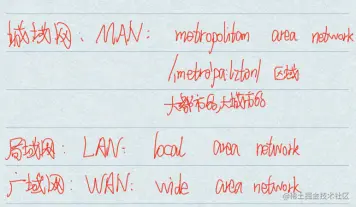 城域网：MAN：metropolitan area network
/metrəˈpɒlɪtən/ 区域
大都市的，大城市的
局域网：LAN：local area network
广域网：WAN：wide area network
@稀土掘金技术社区